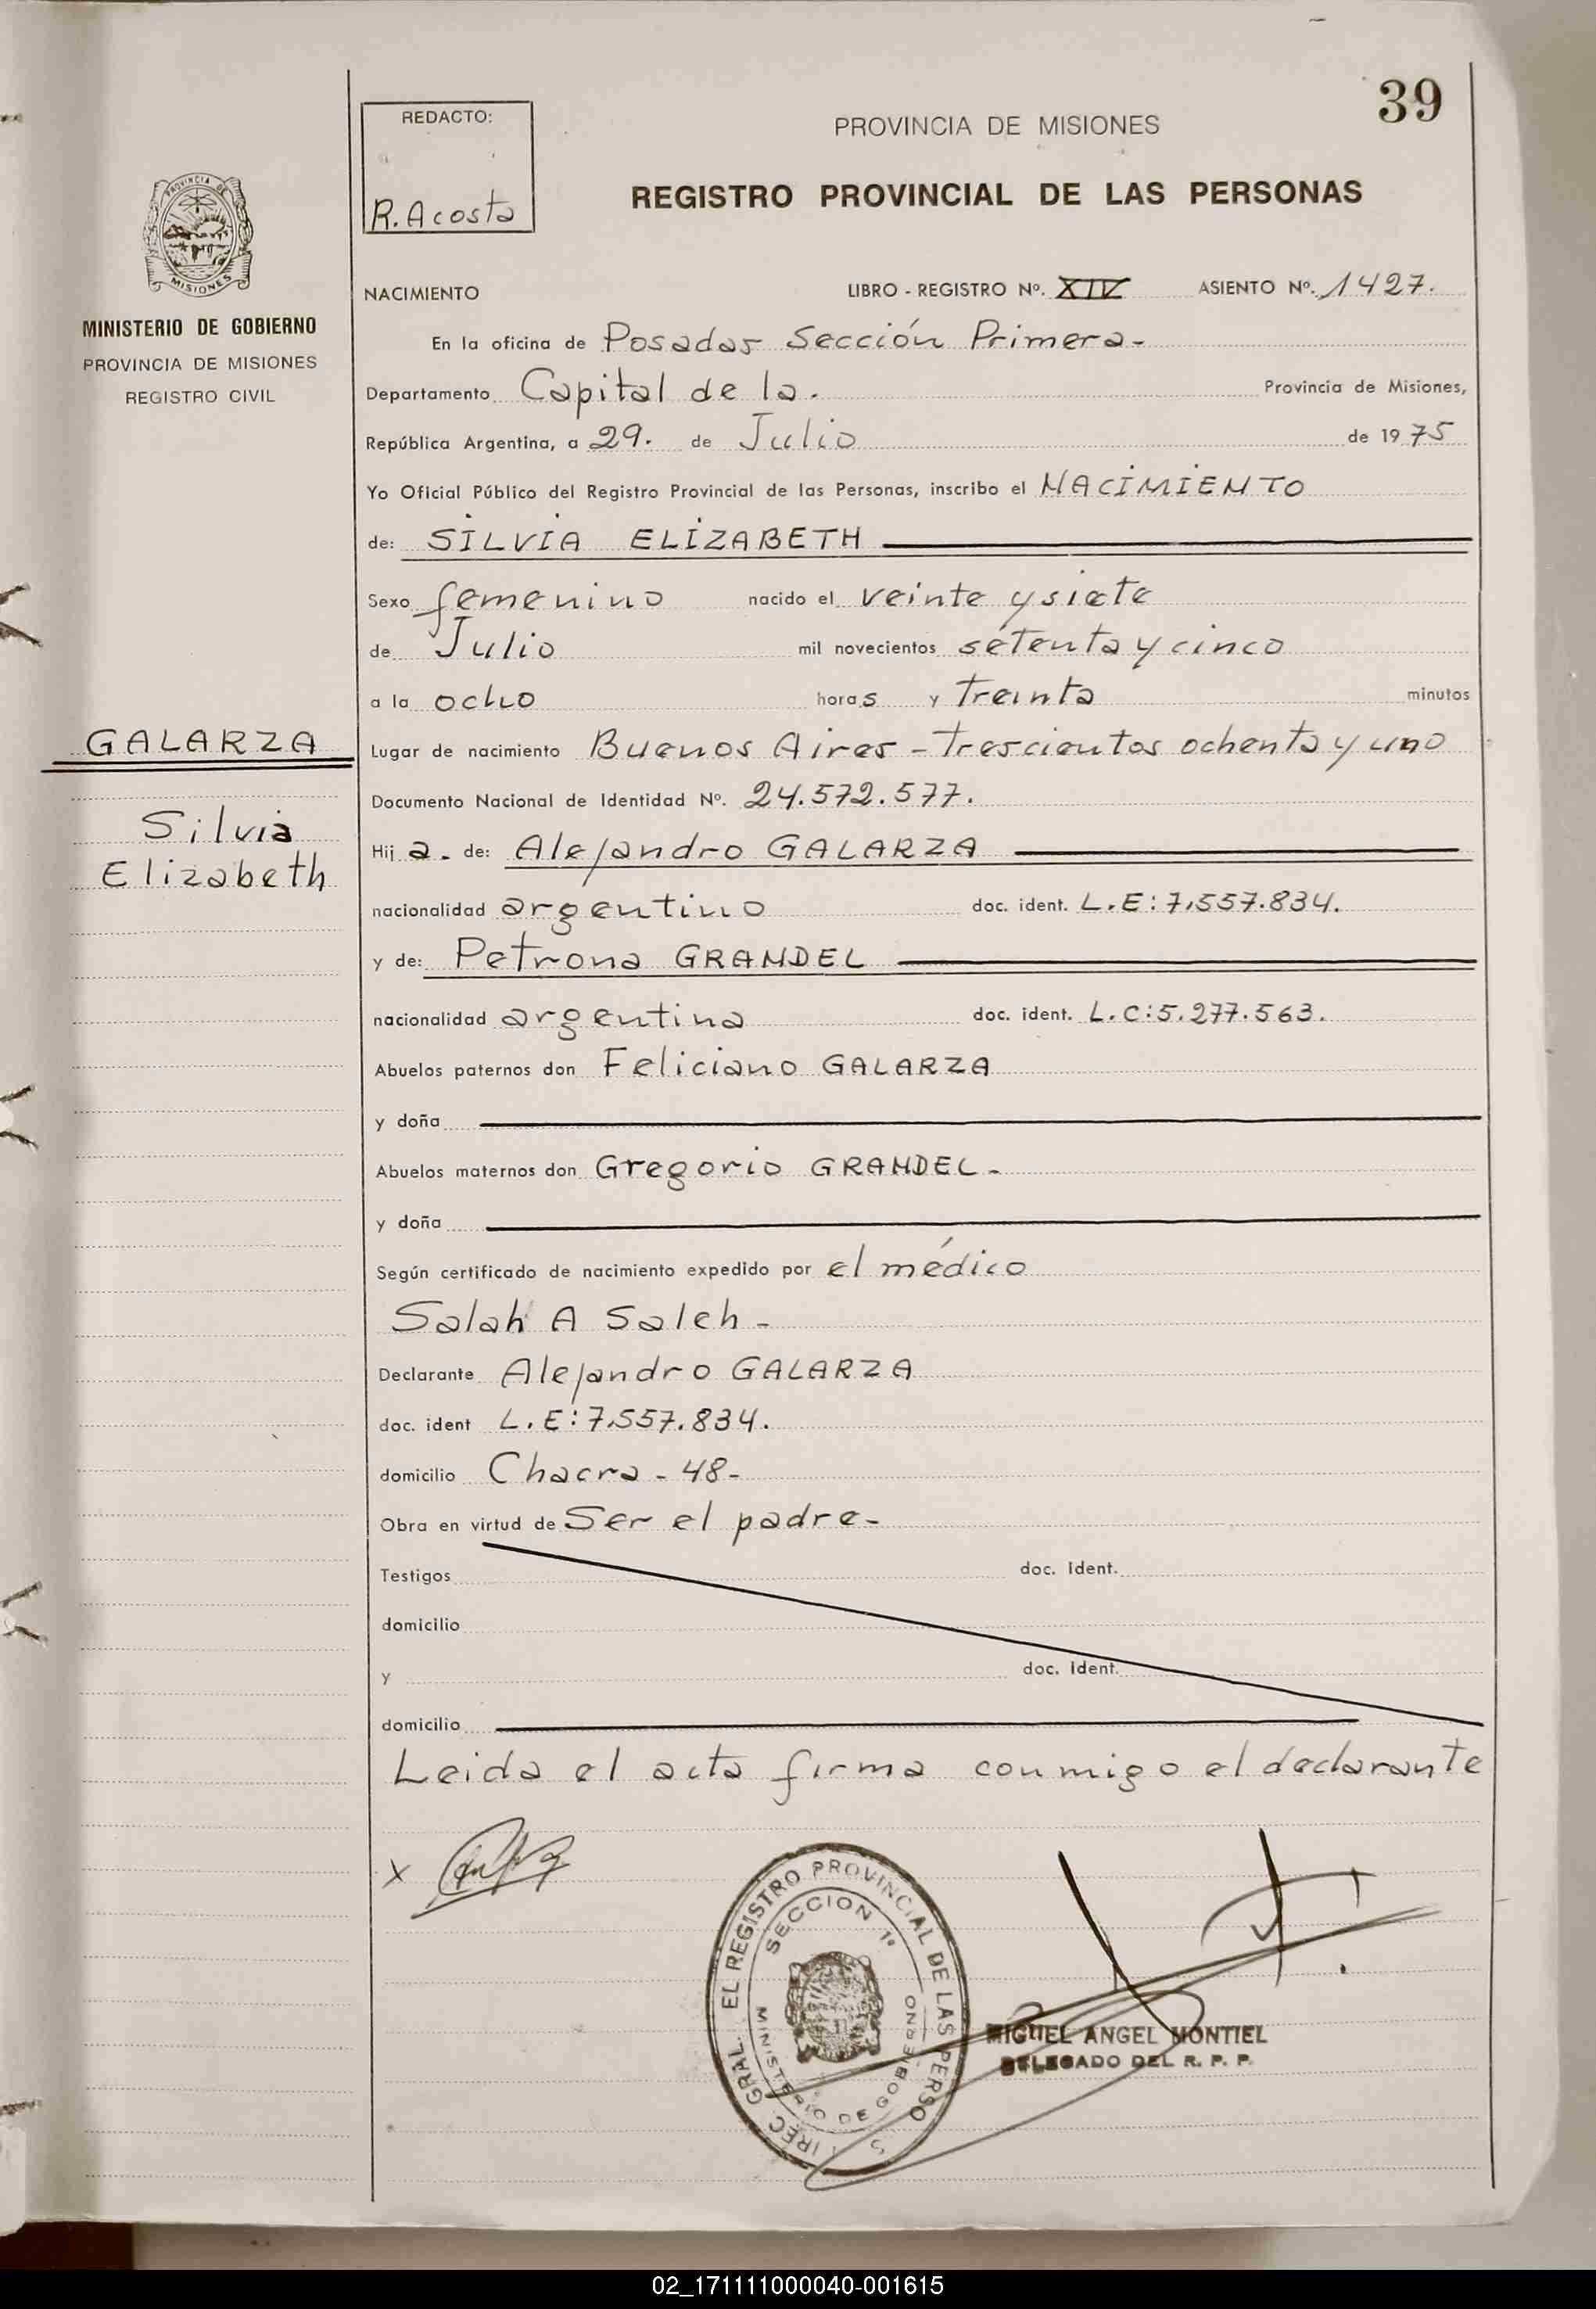 39
REDACTO:
R. Acosta
PROVINCIA DE MISIONES
REGISTRO PROVINCIAL DE LAS PERSONAS
PROVINCIA DE
MISIONES
MINISTERIO DE GOBIERNO
PROVINCIA DE MISIONES
REGISTRO CIVIL
NACIMIENTO LIBRO - REGISTRO Nº. XIV ASIENTO Nº. 1427.
En la oficina de Posadas Sección Primera-
Departamento Capital de la. Provincia de Misiones,
República Argentina, a 29. de Julio de 1975
Yo Oficial Público del Registro Provincial de las Personas, inscribo el NACIMIENTO
de: SILVIA ELIZABETH
Sexo femenino nacido el veinte y siete
de Julio mil novecientos setenta y cinco
a la ocho horas y Treinta minutos
GALARZA
Silvia
Elizabeth
Lugar de nacimiento Buenos Aires - Trescientos ochenta y uno
Documento Nacional de Identidad Nº. 24.572.577.
Hija. de: Alejandro GALARZA
nacionalidad argentino doc. ident. L.E: 7.557.834.
y de: Petrona GRANDEL
nacionalidad argentina doc. ident. L.C: 5.277.563.
Abuelos paternos don Feliciano GALARZA
y doña
Abuelos maternos don Gregorio GRANDEL-
y doña
Según certificado de nacimiento expedido por el médico
Salah A Saleh-
Declarante Alejandro GALARZA
doc. ident L.E: 7.557.834.
domicilio Chacra - 48-
Obra en virtud de Ser el padre-
Testigos doc. Ident.
domicilio
y doc. Ident.
domicilio
Leida el acta firma conmigo el declarante
X
IREC. GRAL. EL REGISTRO PROVINCIAL DE LAS PERSO S
SECCION 1ª
MINISTERIO DE GOBIERNO
MIGUEL ANGEL MONTIEL
DELEGADO DEL R. P. P.
02_171111000040-001615